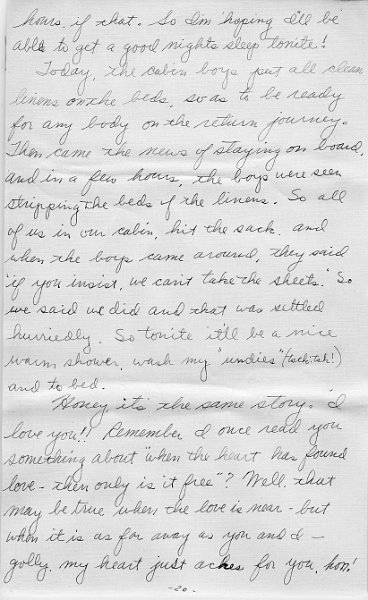 hours, if that. So I'm hoping I'll be
able to get a good nights sleep tonite!
Today, the cabin boys put all clean
linens on the beds, so as to be ready
for any body on the return journey.
Then came the news of staying on board,
and in a few hours, the boys were seen
stripping the beds of the linens. So all
of us in our cabin, hit the sack, and
when the boys came around, they said
"if you insist, we can't take the sheets." So
we said we did and that was settled
hurriedly. So tonite it'll be a nice
warm shower, wash my "undies" (tsch-tsh!)
and to bed.
Honey, it's the same story. I
love you!! Remember I once read you
something about "when the heart has found
love - then only is it free"? Well, that
may be true when the love is near - but
when it is as far away as you and I -
golly, my heart just aches for you, hon!
-20-